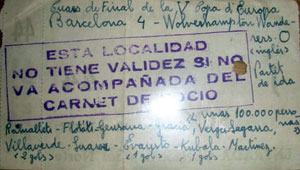 de Final de la V Copa d'Europa
Barcelona 4 - Wolverhampton Wande-
rers. 0
(inglés)
Partit
de ida
ESTA LOCALIDAD
NO TIENE VALIDEZ SI NO
VA ACOMPAÑADA DEL
CARNET DE SOCIO
unas 100.000 perso
nas
Ramallets - Flotats - Gensana - Gracia, Verges - Segarra,
Villaverde - Suarez - Evaristo - Kubala - Martinez.
(2 gols) (1 gol) (1 gol)